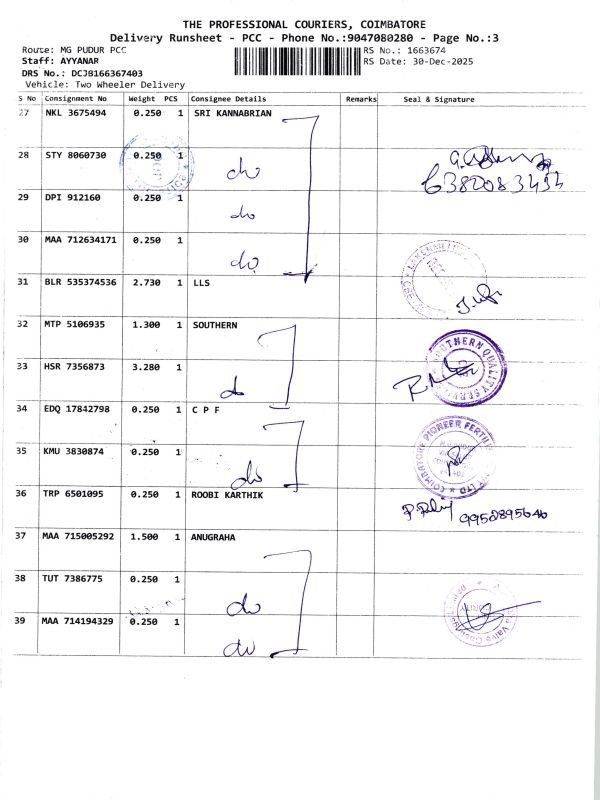 THE PROFESSIONAL COURIERS, COIMBATORE
Delivery Runsheet - PCC - Phone No.:9047080280 - Page No.:3
Route: MG PUDUR PCC RS No.: 1663674
Staff: AYYANAR RS Date: 30-Dec-2025
DRS No.: DCJB166367403
Vehicle: Two Wheeler Delivery
S No Consignment No Weight PCS Consignee Details Remarks Seal & Signature
27 NKL 3675494 0.250 1 SRI KANNABRIAN
28 STY 8060730 0.250 1 do
6382083494
29 DPI 912160 0.250 1 do
30 MAA 712634171 0.250 1 do
31 BLR 535374536 2.730 1 LLS
32 MTP 5106935 1.300 1 SOUTHERN
SOUTHERN QUALITY
33 HSR 7356873 3.280 1 do
34 EDQ 17842798 0.250 1 C P F
COIMBATORE PIONEER FERTI LTD
35 KMU 3830874 0.250 1 do
36 TRP 6501095 0.250 1 ROOBI KARTHIK
9952895646
37 MAA 715005292 1.500 1 ANUGRAHA
38 TUT 7386775 0.250 1 do
39 MAA 714194329 0.250 1 do